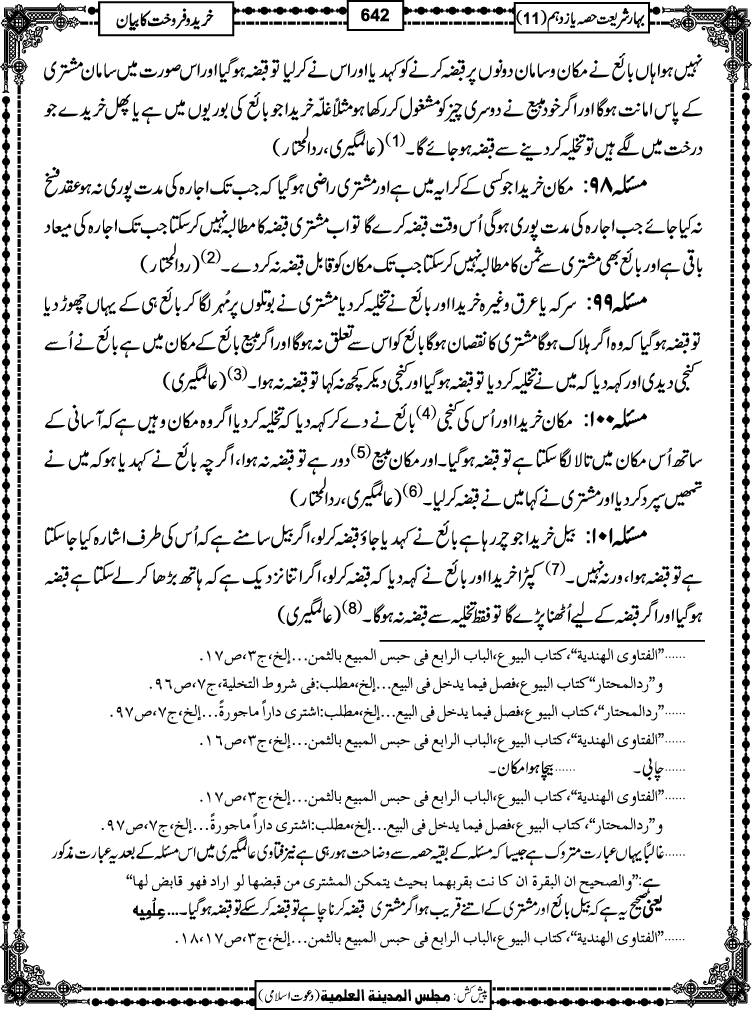 بہارِ شریعت حصہ یازدہم (11)
642
خرید و فروخت کا بیان
نہیں ہوا ہاں بائع نے مکان و سامان دونوں پر قبضہ کرنے کو کہدیا اور اس نے کر لیا تو قبضہ ہوگیا اور اس صورت میں سامان مشتری
کے پاس امانت ہوگا اور اگر خود مبیع نے دوسری چیز کو مشغول کر رکھا ہو مثلاً غلّہ خریدا جو بائع کی بوریوں میں ہے یا پھل خریدے جو
درخت میں لگے ہیں تو تخلیہ کر دینے سے قبضہ ہو جائے گا۔(1) (عالمگیری، ردالمحتار)
مسئلہ ۹۸: مکان خریدا جو کسی کے کرایہ میں ہے اور مشتری راضی ہوگیا کہ جب تک اجارہ کی مدت پوری نہ ہو عقد فسخ
نہ کیا جائے جب اجارہ کی مدت پوری ہوگی اُس وقت قبضہ کرے گا تو اب مشتری قبضہ کا مطالبہ نہیں کرسکتا جب تک اجارہ کی میعاد
باقی ہے اور بائع بھی مشتری سے ثمن کا مطالبہ نہیں کرسکتا جب تک مکان کو قابل قبضہ نہ کردے۔(2) (ردالمحتار)
مسئلہ ۹۹: سرکہ یا عرق وغیرہ خریدا اور بائع نے تخلیہ کر دیا مشتری نے بوتلوں پر مُہر لگا کر بائع ہی کے یہاں چھوڑ دیا
تو قبضہ ہوگیا کہ وہ اگر ہلاک ہوگا مشتری کا نقصان ہوگا بائع کو اس سے تعلق نہ ہوگا اور اگر مبیع بائع کے مکان میں ہے بائع نے اُسے
کنجی دیدی اور کہہ دیا کہ میں نے تخلیہ کر دیا تو قبضہ ہوگیا اور کنجی دیکر کچھ نہ کہا تو قبضہ نہ ہوا۔(3) (عالمگیری)
مسئلہ ۱۰۰: مکان خریدا اور اُس کی کنجی(4) بائع نے دے کر کہہ دیا کہ تخلیہ کر دیا اگر وہ مکان وہیں ہے کہ آسانی کے
ساتھ اُس مکان میں تالا لگا سکتا ہے تو قبضہ ہوگیا۔ اور مکان مبیع(5) دور ہے تو قبضہ نہ ہوا، اگرچہ بائع نے کہدیا ہو کہ میں نے
تمھیں سپرد کر دیا اور مشتری نے کہا میں نے قبضہ کر لیا۔(6) (عالمگیری، ردالمحتار)
مسئلہ ۱۰۱: بیل خریدا جو چر رہا ہے بائع نے کہدیا جاؤ قبضہ کر لو، اگر بیل سامنے ہے کہ اُس کی طرف اشارہ کیا جاسکتا
ہے تو قبضہ ہوا، ورنہ نہیں۔(7) کپڑا خریدا اور بائع نے کہہ دیا کہ قبضہ کر لو، اگر اتنا نزدیک ہے کہ ہاتھ بڑھا کر لے سکتا ہے قبضہ
ہوگیا اور اگر قبضہ کے لیے اُٹھنا پڑے گا تو فقط تخلیہ سے قبضہ نہ ہوگا۔(8) (عالمگیری)
......”الفتاوی الهندیة“، کتاب البیوع، الباب الرابع فی حبس المبیع بالثمن...إلخ، ج۳، ص۱۷.
و”ردالمحتار“ کتاب البیوع، فصل فیما یدخل فی البیع...إلخ، مطلب: فی شروط التخلیة، ج۷، ص۹۶.
......”ردالمحتار“، کتاب البیوع، فصل فیما یدخل فی البیع...إلخ، مطلب: اشتری داراً ماجورةً...إلخ، ج۷، ص۹۷.
......”الفتاوی الهندیة“، کتاب البیوع، الباب الرابع فی حبس المبیع بالثمن...إلخ، ج۳، ص۱۶.
......چابی۔ ......بیچا ہوا مکان۔
......”الفتاوی الهندیة“، کتاب البیوع، الباب الرابع فی حبس المبیع بالثمن...إلخ، ج۳، ص۱۷.
و”ردالمحتار“، کتاب البیوع، فصل فیما یدخل فی البیع...إلخ، مطلب: اشتری داراً ماجورةً...إلخ، ج۷، ص۹۷.
......غالباً یہاں عبارت متروک ہے جیسا کہ مسئلہ کے بقیہ حصہ سے وضاحت ہو رہی ہے نیز فتاوی عالمگیری میں اس مسئلہ کے بعد یہ عبارت مذکور
ہے:”والصحیح ان البقرة ان کا نت بقربهما بحیث یتمکن المشتری من قبضها لو اراد فهو قابض لها“
یعنی صحیح یہ ہے کہ بیل بائع اور مشتری کے اتنے قریب ہو اگر مشتری قبضہ کرنا چاہے تو قبضہ کر سکے تو قبضہ ہوگیا۔... عِلْمِیه
......”الفتاوی الهندیة“، کتاب البیوع، الباب الرابع فی حبس المبیع بالثمن...إلخ، ج۳، ص۱۷،۱۸.
پیش کش: مجلس المدینة العلمیة (دعوت اسلامی)